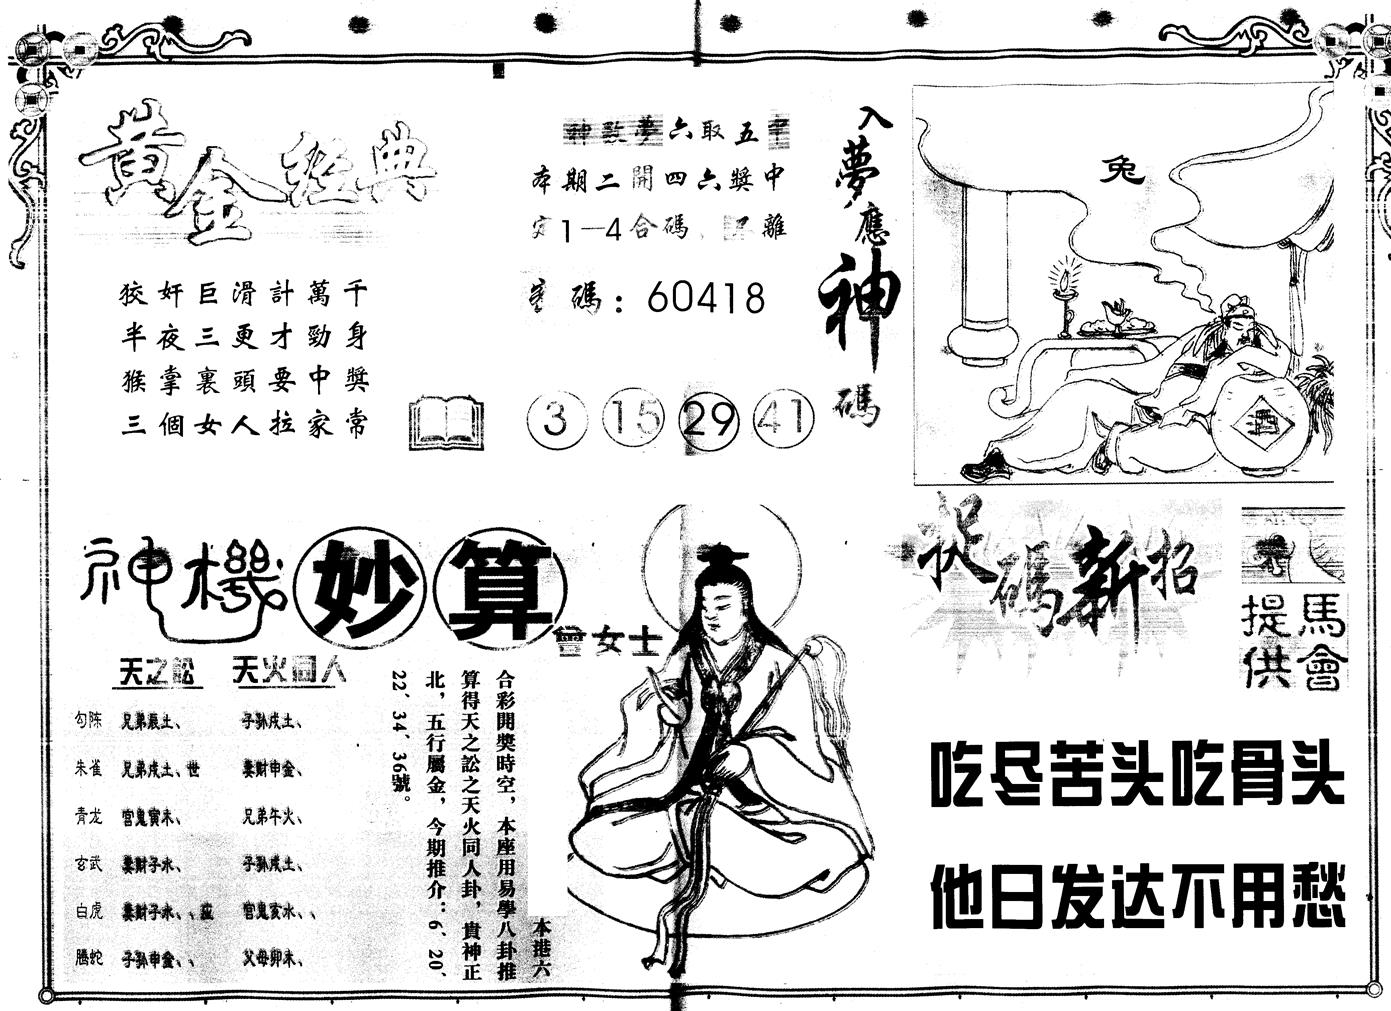 黃金經典
狡奸巨滑計萬千
半夜三更才勁身
猴掌裏頭要中獎
三個女人拉家常
神數夢六取五中
本期二開四六獎中
1—4合碼、 離
密碼：60418
3 15 29 41
入夢應神碼
兔
酒
神機妙算
曾女士
天之訟 天火同人
勾陈 兄弟辰土、 子孙戌土、
朱雀 兄弟戌土、世 妻财申金、
青龙 官鬼寅木、 兄弟午火、
玄武 妻财子水、 子孙戌土、
白虎 妻财子水、、应 官鬼亥水、、
騰蛇 子孙申金、、 父母卯木、
本港六
合彩開獎時空，本座用易學八卦推
算得天之訟之天火同人卦，貴神正
北，五行屬金，今期推介：6、20、
22、34、36號。
捉碼新招
馬會
提供
吃尽苦头吃骨头
他日发达不用愁